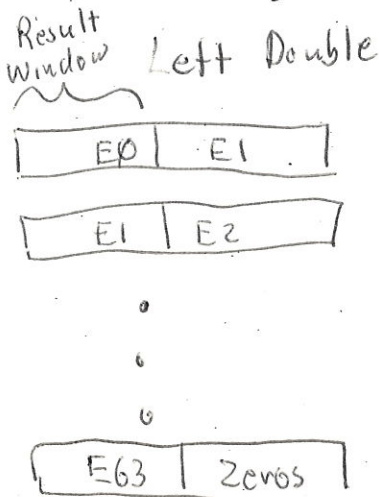 Result
Window Left Double
EØ E1
E1 E2
E63 Zeros